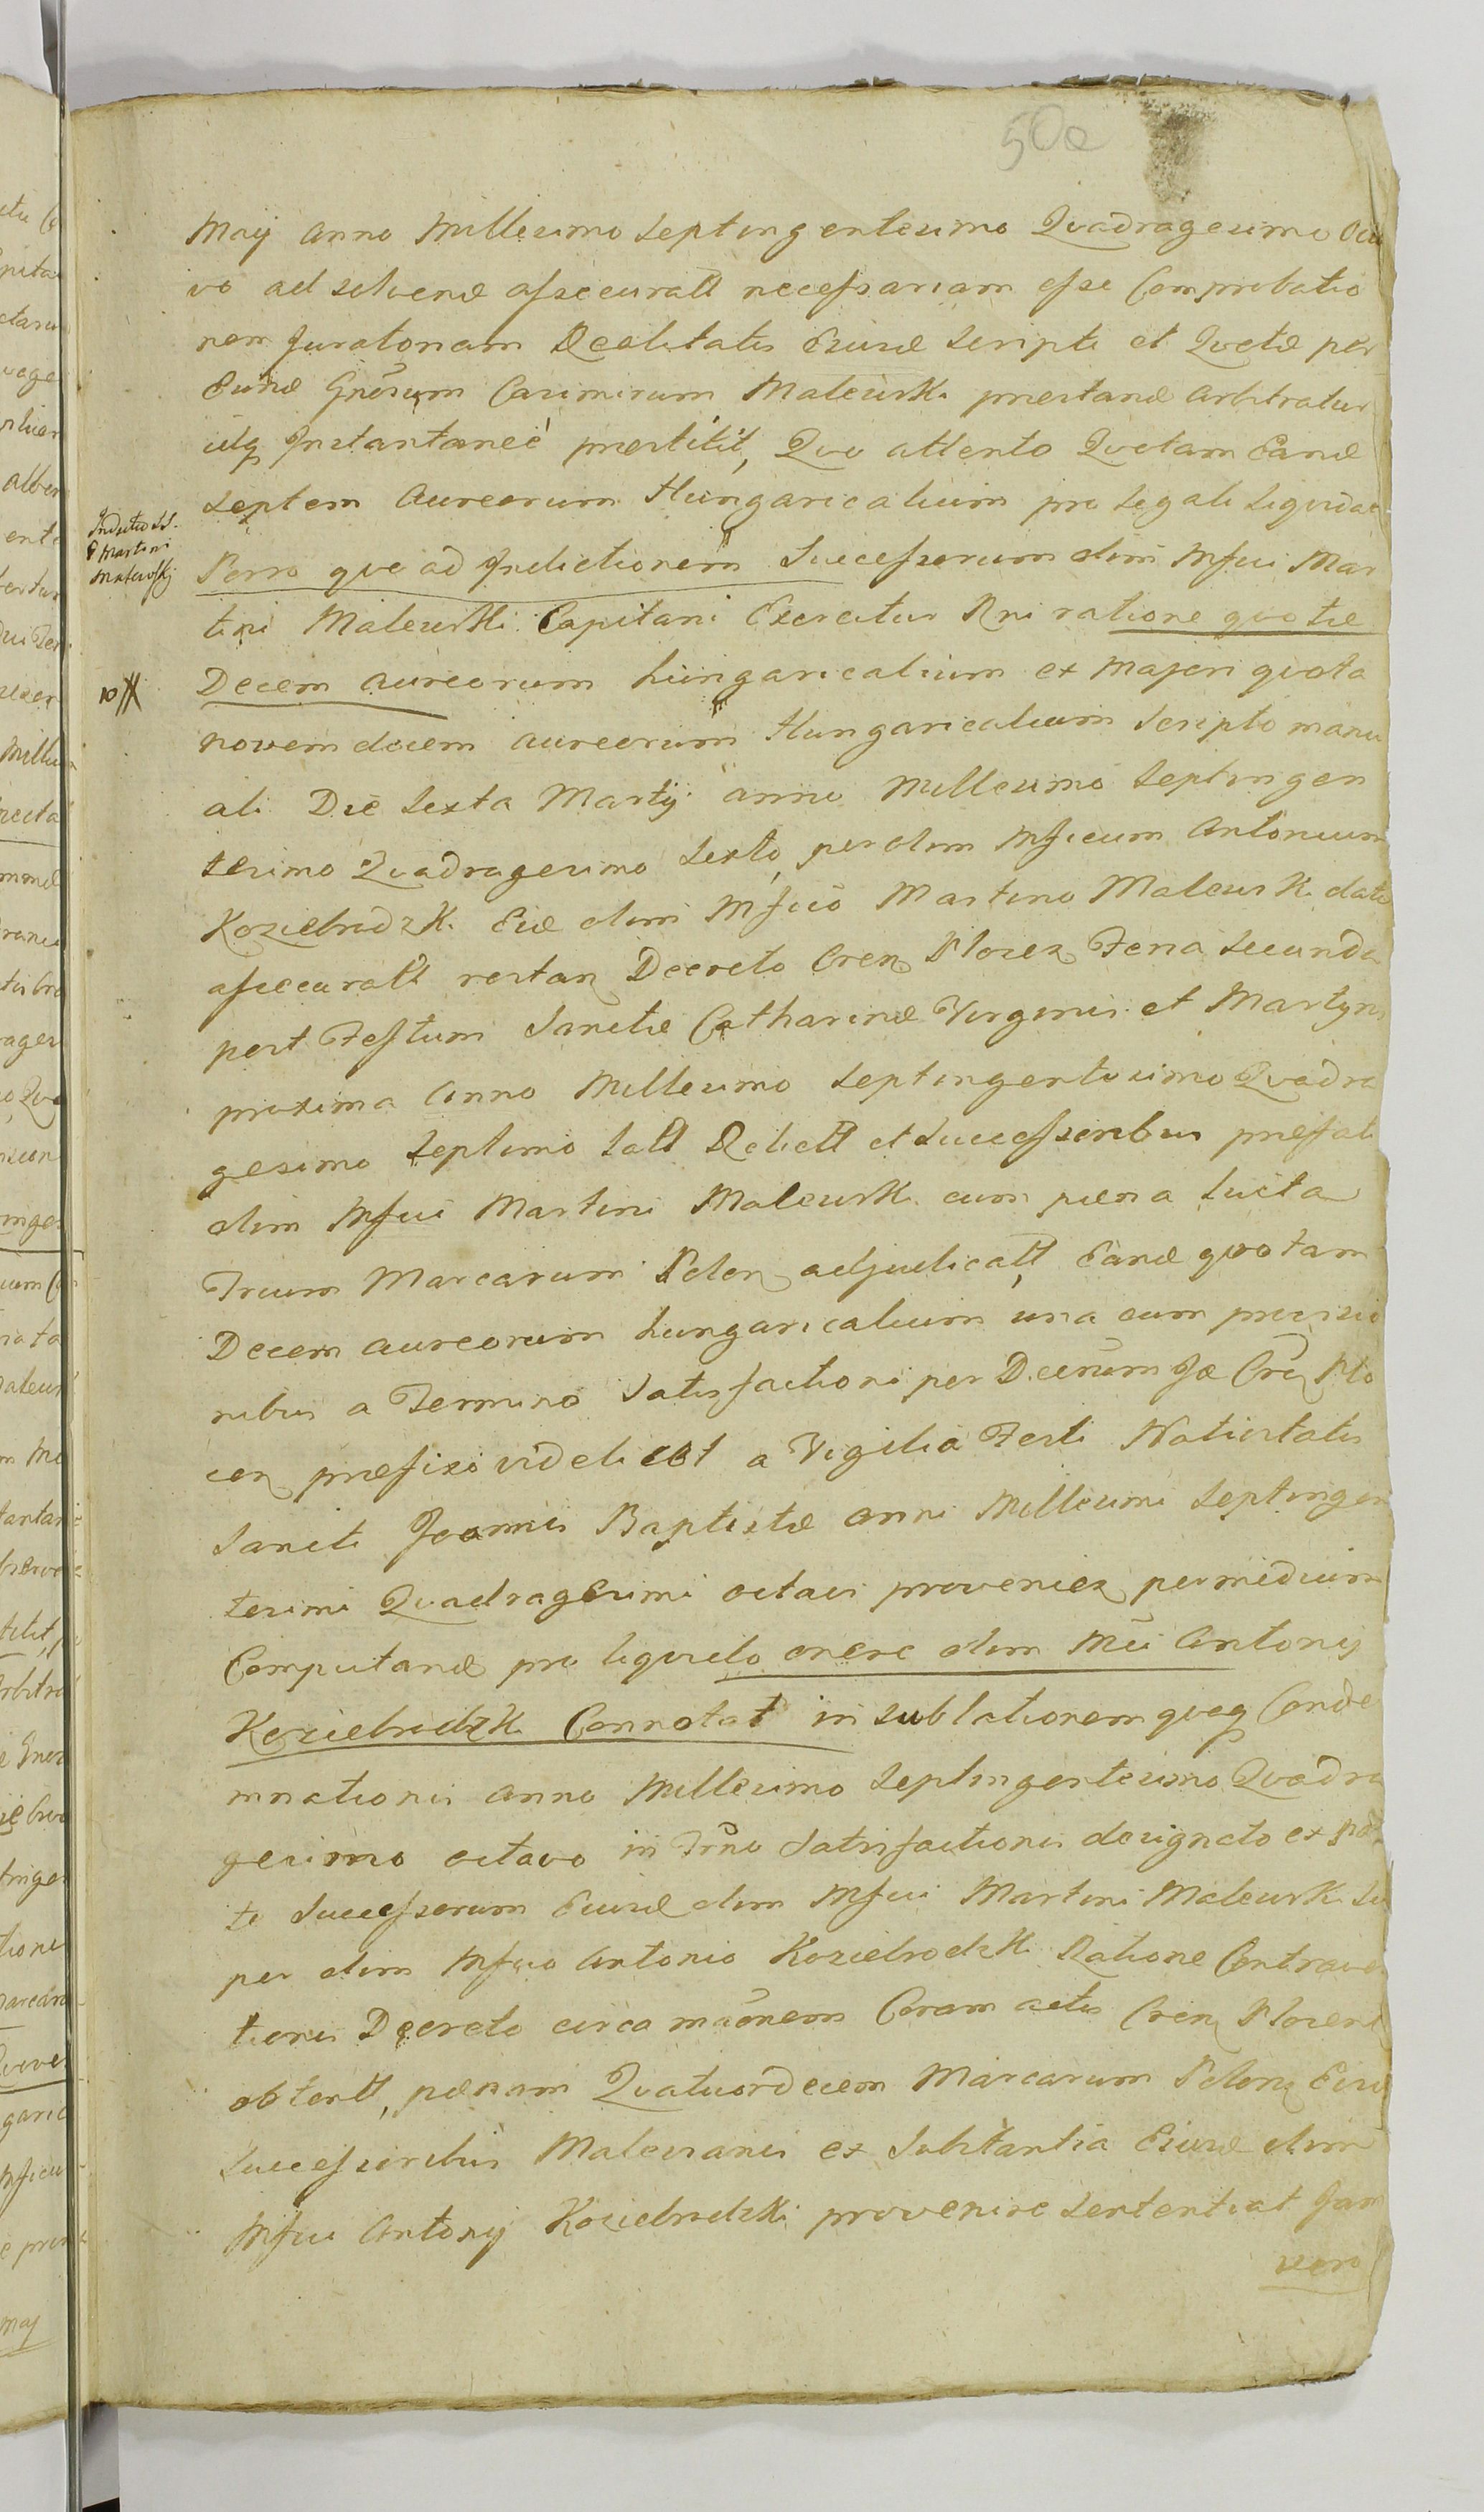 50e
Maij Anno Millesimo Septingentesimo Quadragesimo Octa
vo ad solvend assecuratt necessariam esse Comprobatio
nem Juratoriam Realitatis Eiusd Scripti et Qvotæ per
Eund Gnõsum Casimirum Malewsk. præstand Arbitratur
idq Instantaneè præstitit, Qvo attento Qvotam Eand
Septem Aureorum Hungaricalium pro Legali Liqvidat
Porro qvo ad Indictionem Successorum olim Mfici Mar
tini Malewski Capitani Exercitus Rni ratione qvotæ
Decem aureorum hungaricalium ex majori qvota
novemdecem aureorum Hungaricalium Scripto manu
ali Die Sexta Martij anno Millesimo Septingen
tesimo Quadragesimo Sexto per olim Mficum Antonium
Koziebrodzk. Eid olim Mfico Martino Malewsk. dato
assecuratt restan Decreto Cren Plocen Feria Secunda
post Festum Sanctæ Catharinæ Virginis et Martyris
proxima Anno Millesimo Septingentesimo Qvadra
gesimo Septimo latt Relictt et Successoribus præfati
olim Mfici Martini Malewsk. cum pæna Luita
Trium Marcarum Polon adjudicatt, Eand qvotam
Decem aureorum hungaricalium una cum provisio
nibus a Termino Satisfactioni per Decrũm Jæ Crẽn Plo
cen præfixo videlicet a Vigilia Festi Nativitatis
Sancti Joannis Baptistæ anni Millesimi Septingen
tesimi Quadragesimi octavi provenien per medium
Computand pro liqvido onere olim Mci Antonij
Koziebrodzk. Connotat in sublationem qvoq Conde
mnationis anno Millesimo Septingentesimo Qvadra
gesimo octavo in Trno Satisfactionis designato ex par
te Successorum Eiusd olim Mfici Martini Malewsk. Su
per olim Mfico Antonio Koziebrodzk. Ratione Contraven
tionis Decreto circa mãonem Coram actis Cren Plocens
obtentt, pænam Qvatuordecem Marcarum Polon Eisd
Successoribus Malewianis ex Substantia Eiusd olim
Mfici Antonij Koziebrodzki provenire Sententiat Jam
vero
Indictio SS.
O Martini
Malewskj
10 #